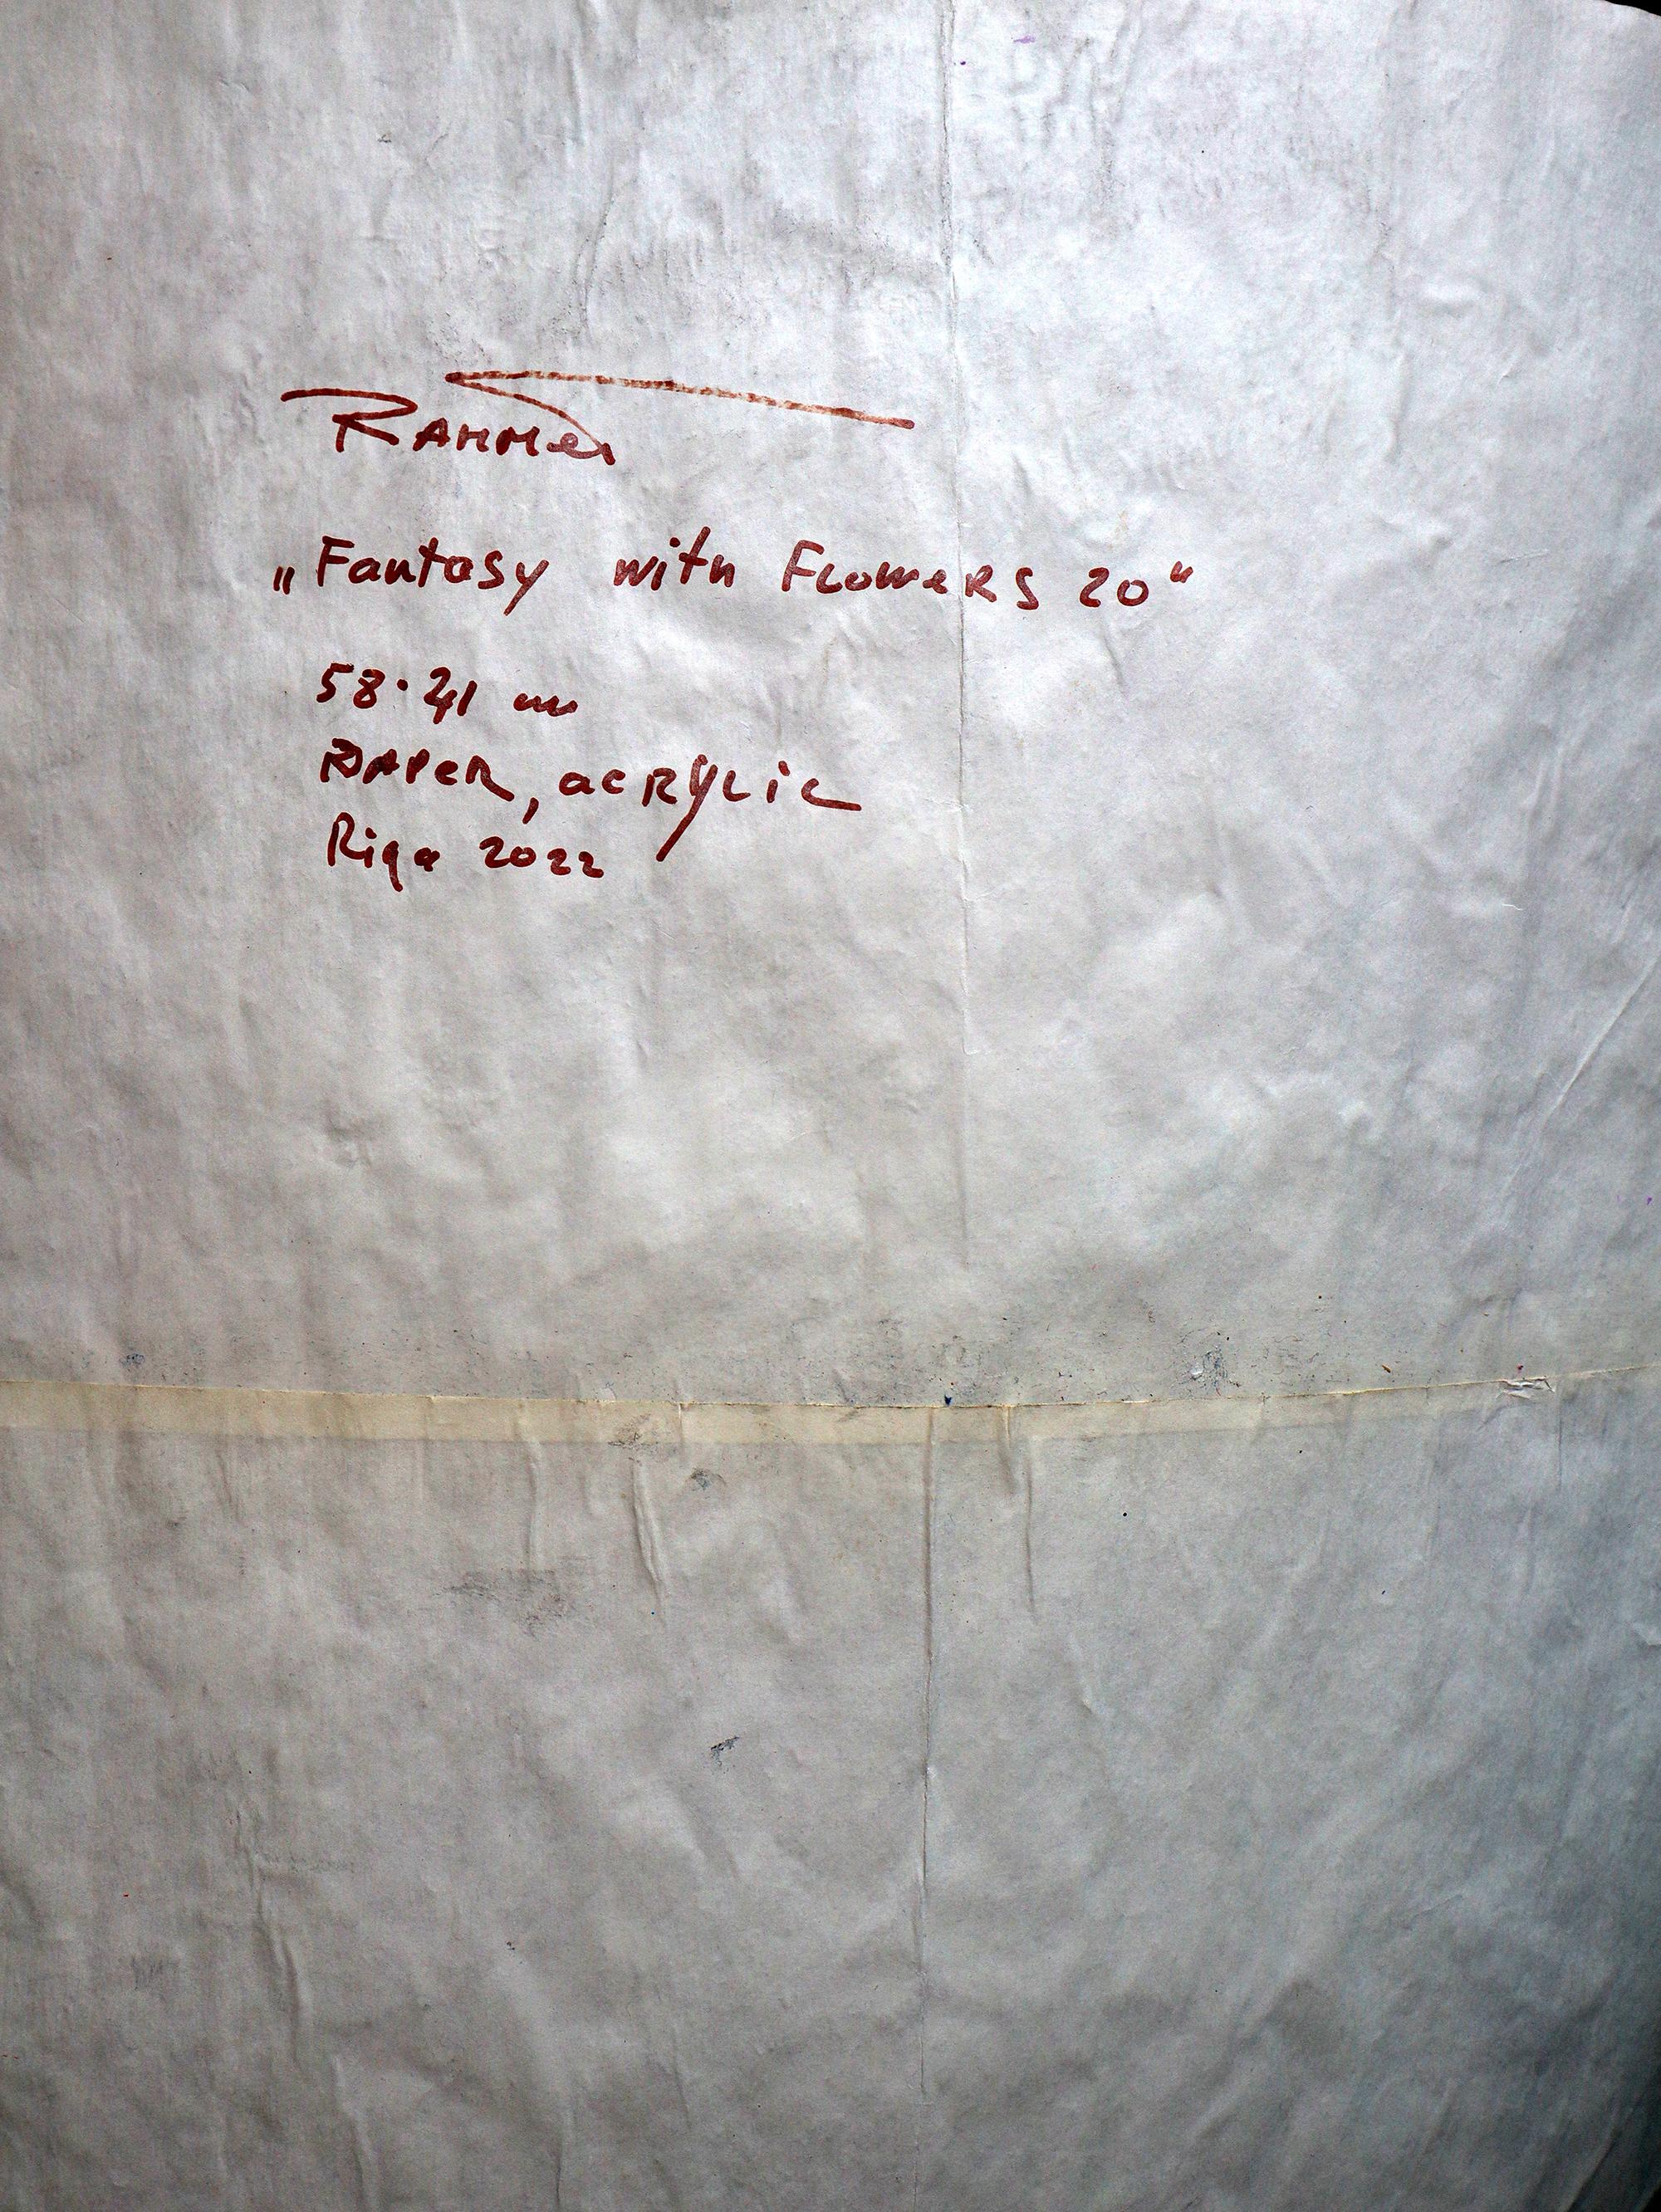 „Fantasy with Flowers 20“
58·41 cm
PAPER, acRYLic
Riga 2022